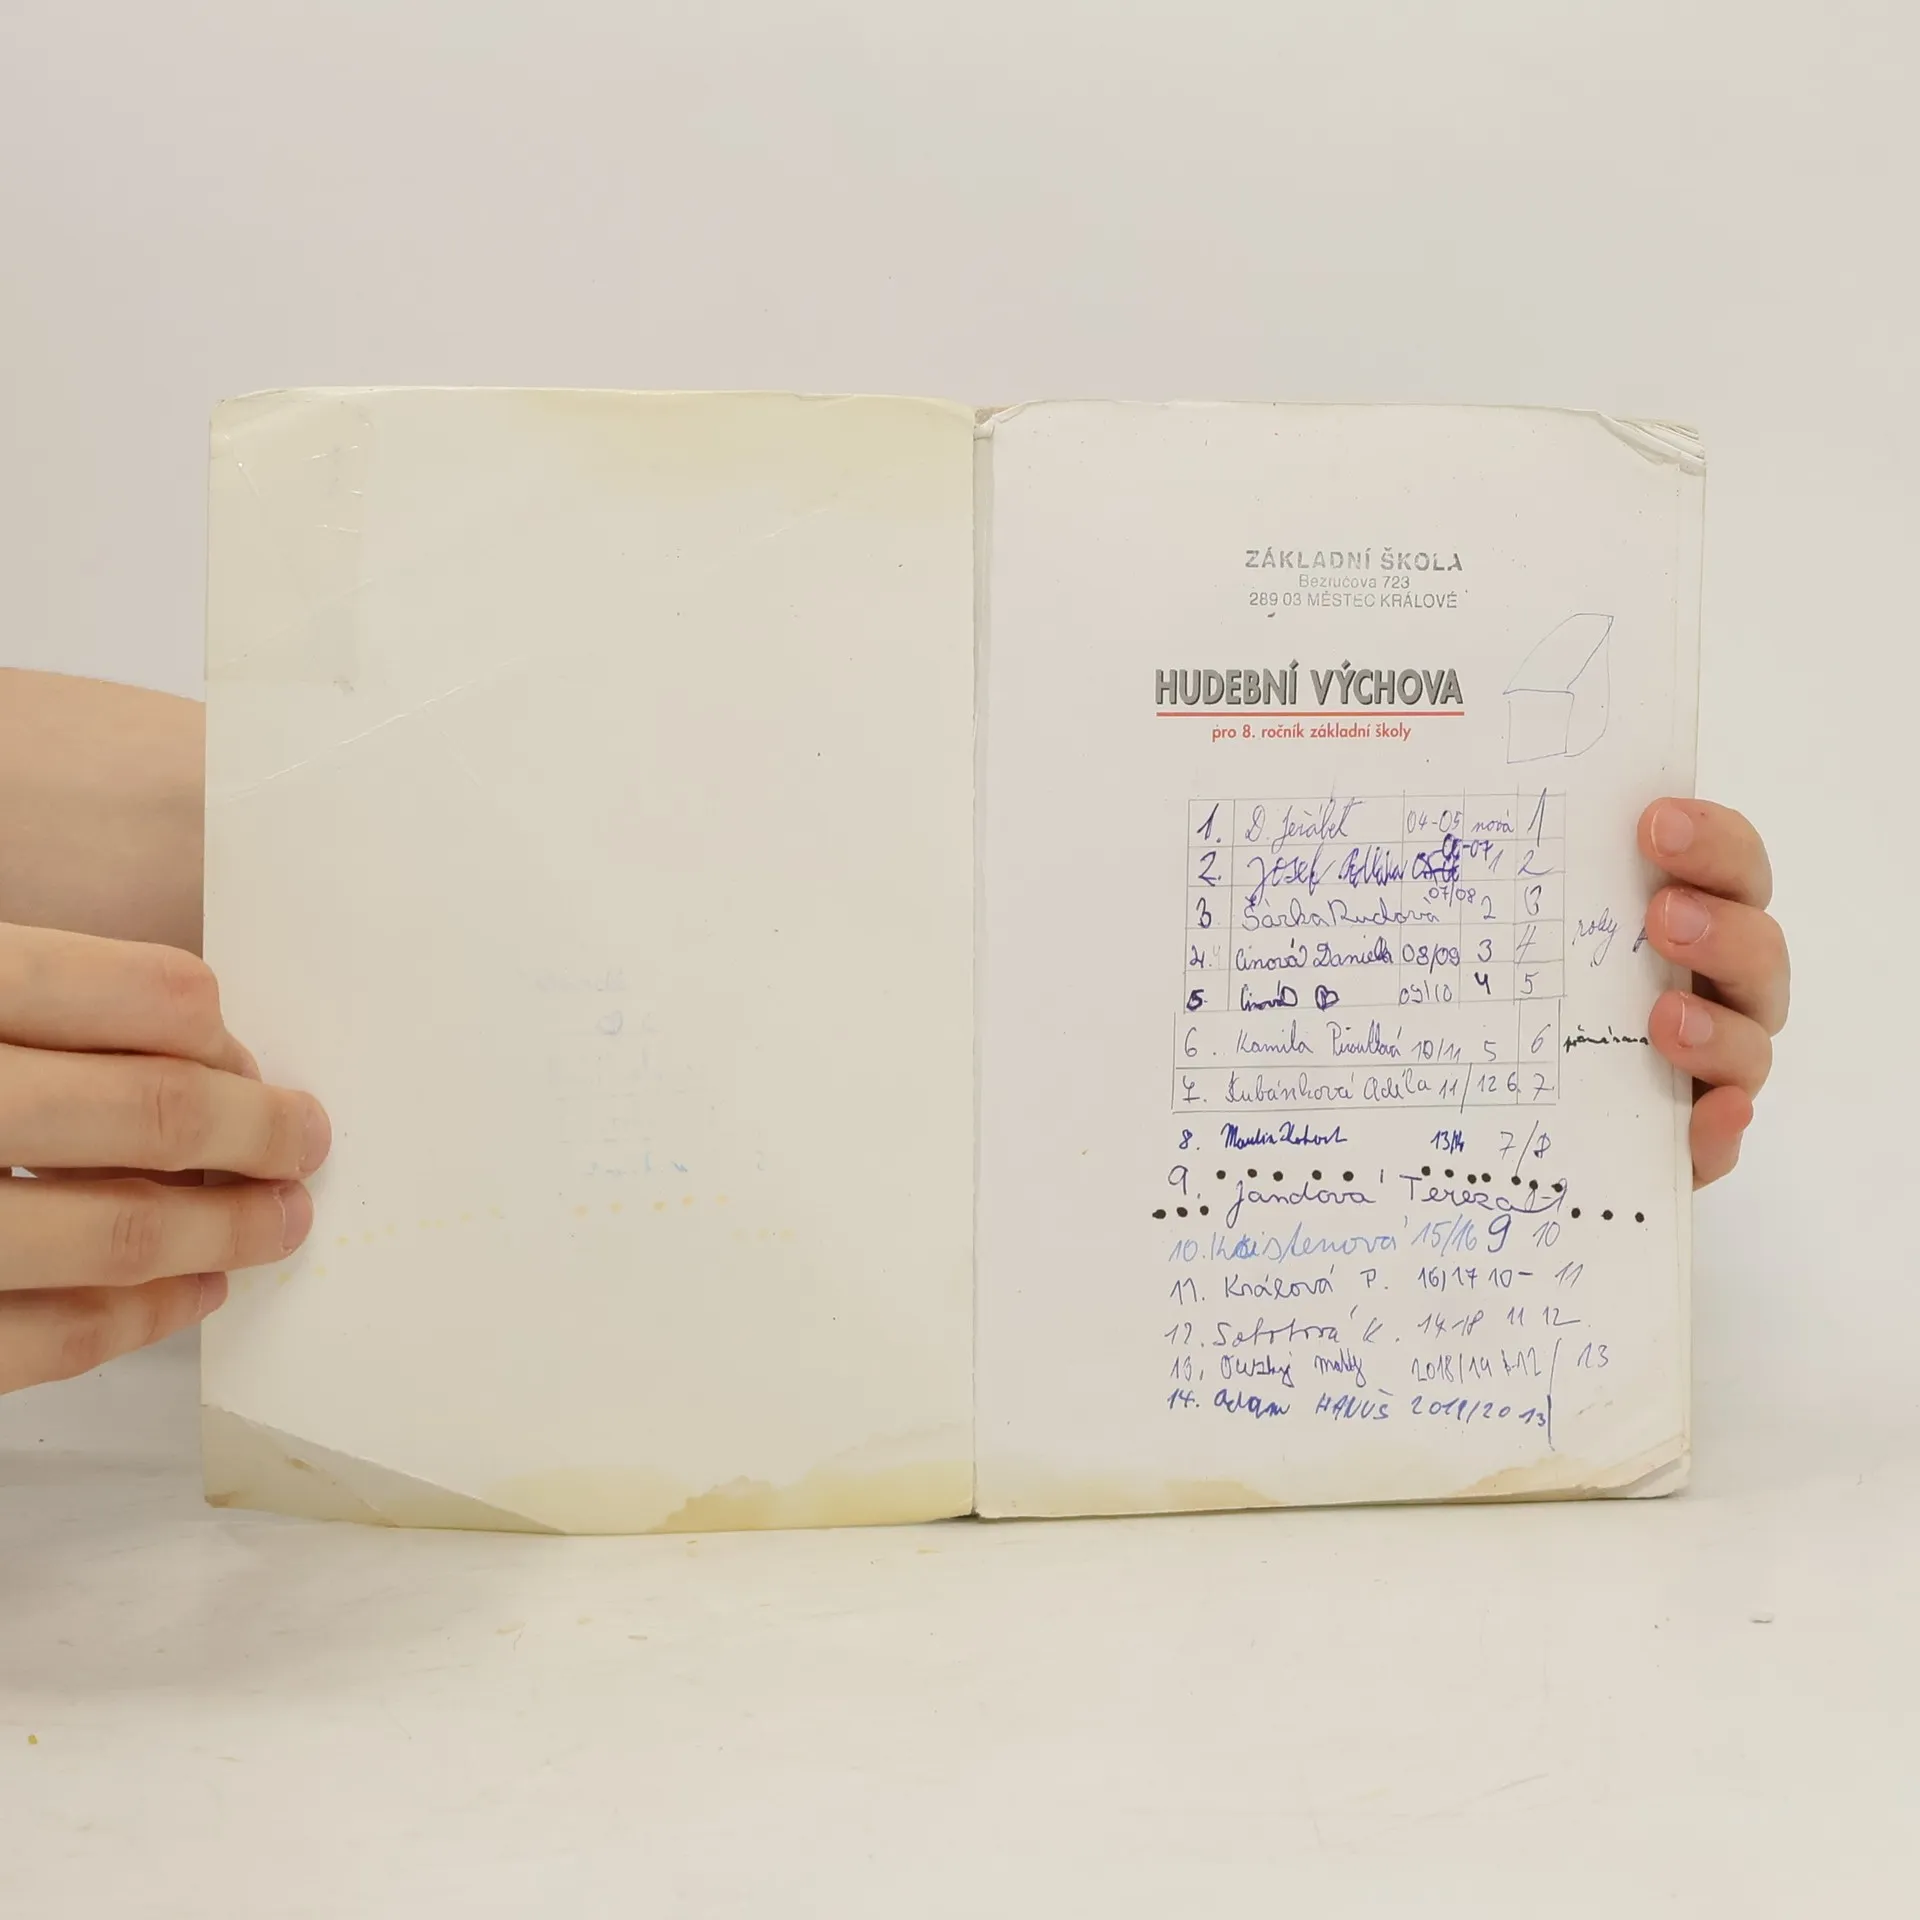 ZÁKLADNÍ ŠKOLA
Bezručova 723
289 03 MĚSTEC KRÁLOVÉ
HUDEBNÍ VÝCHOVA
pro 8. ročník základní školy
1. D. Jeřábek 04-05 nová 1
2. Josef 06-07 1 2
3. Šárka Rudová 07/08 2 3
4. Cinová Daniela 08/09 3 4
5. Cinová D 09/10 4 5
6. Kamila 10/11 5 6
7. Kubánková Adéla 11/12 6. 7.
8. 13/14 7/8
9. Jandová Tereza
10. 15/16 9 10
11. Králová P. 16/17 10- 11
12. K. 17-18 11 12
13. 2018/19 12/13
14. Adam HANUŠ 2019/20 13